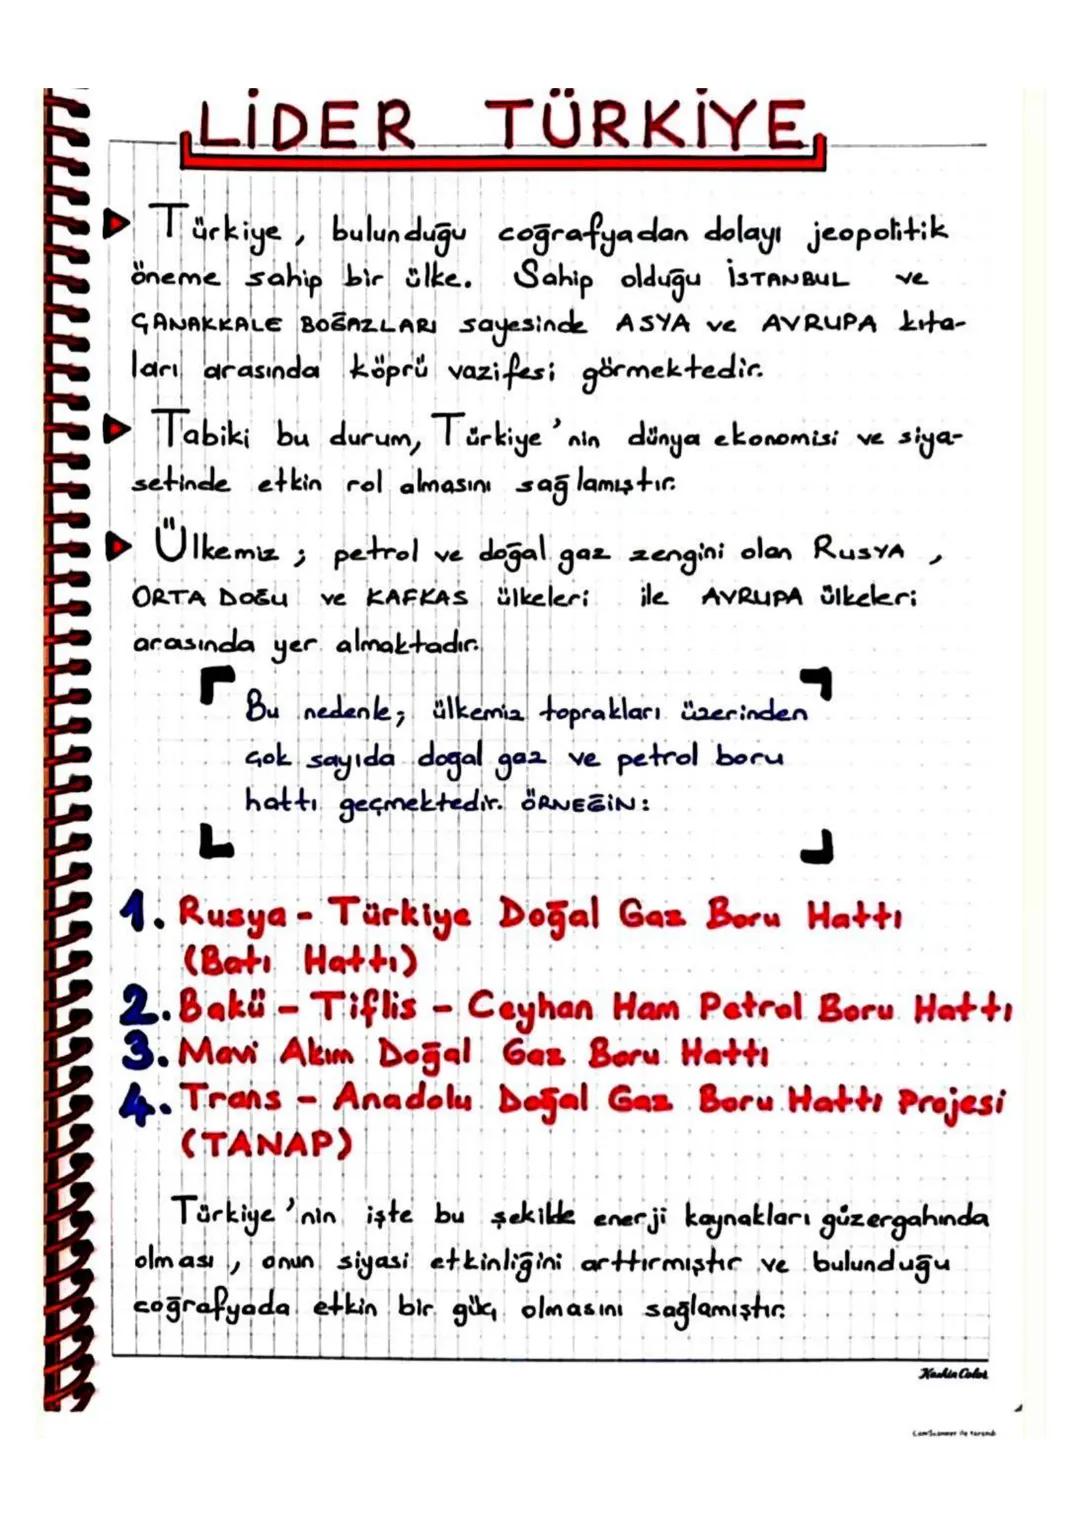 LİDER TÜRKİYE
Türkiye, bulunduğu coğrafyadan dolayı jeopolitik
öneme sahip bir ülke. Sahip olduğu İSTANBUL ve
ÇANAKKALE BOĞAZLARI sayesinde ASYA ve AVRUPA kıta-
ları arasında köprü vazifesi görmektedir.
Tabiki bu durum, Türkiye'nin dünya ekonomisi ve siya-
setinde etkin rol almasını sağlamıştır.
Ülkemiz; petrol ve doğal gaz zengini olan RUSYA,
ORTA DOĞU ve KAFKAS ülkeleri ile AVRUPA ülkeleri
arasında yer almaktadır.
Bu nedenle; ülkemiz toprakları üzerinden
çok sayıda doğal gaz ve petrol boru
hattı geçmektedir. ÖRNEĞİN:
1. Rusya - Türkiye Doğal Gaz Boru Hattı
(Batı Hattı)
2. Bakü - Tiflis - Ceyhan Ham Petrol Boru Hattı
3. Mavi Akım Doğal Gaz Boru Hattı
4. Trans - Anadolu Doğal Gaz Boru Hattı Projesi
(TANAP)
Türkiye'nin işte bu şekilde enerji kaynakları güzergahında
olması, onun siyasi etkinliğini arttırmıştır ve bulunduğu
coğrafyada etkin bir güç olmasını sağlamıştır.
CamScanner ile tarandı